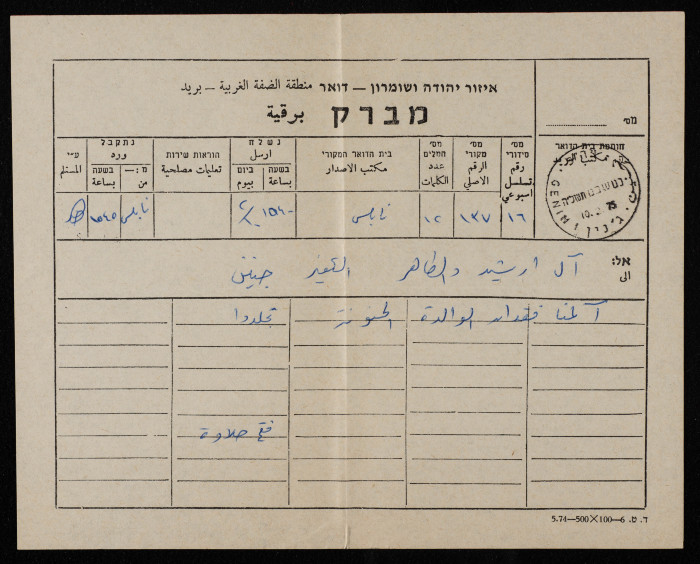 איזור יהודה ושומרון — דואר منطقة الضفة الغربية — بريد
מברק برقية
מס׳
מס׳ סידורי رقم تسلسل اسبوعي
מס׳ מקורי الرقم الاصلي
מס׳ המלים عدد الكلمات
בית הדואר המקורי مكتب الاصدار
נשלח ارسل
בשעה بساعة
ביום بيوم
הוראות שירות تعليمات مصلحية
נתקבל ورد
מ:— من
בשעה بساعة
ע״י المستلم
חותמת בית הדואר
مكتب البريد
GENIN
75
١٦ ١٣٧ ١٢ نابلس ١٥٤٠ نابلس ١٥٤٥
אל: الى
آل ارشيد والطاهر جنين
آلمنا فقدان الوالدة الحنونة تجلدوا
فتح حلاوة
ד. ט. 5.74—500×100—6